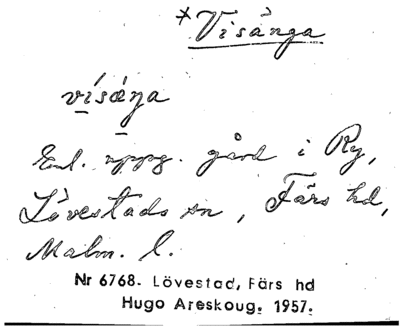 *Visånga
vísáŋa
Enl. uppg. gård i Ry,
Lövestads sn, Färs hd,
Malm. l.
Nr 6768. Lövestad, Färs hd
Hugo Areskoug. 1957.